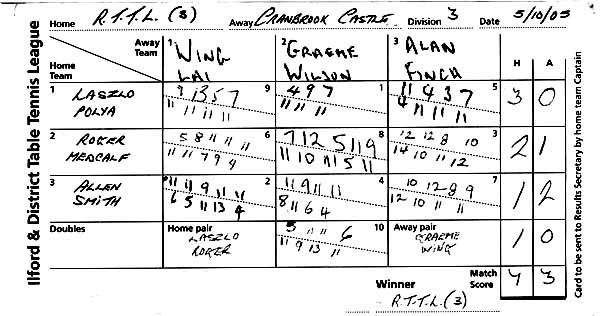 Ilford & District Table Tennis League
Home R.T.T.L. (3) Away CRANBROOK CASTLE Division 3 Date 5/10/05
Away Team 1 WING LAI 2 GRAEME WILSON 3 ALAN FINCH H A
Home Team
1 LASZLO POLYA 9 1 5 3 0
4 9 7
11 11 11
11 4 3 7
4 11 11 11
2 ROGER MEDCALF 6 8 3 2 1
5 8 11 11 11
11 11 7 9 4
7 12 5 11 9
11 10 11 5 11
12 12 8 10
14 10 11 12
3 ALLEN SMITH 2 4 7 1 2
11 11 9 11 11
6 5 11 13 4
11 9 11 11
8 11 6 4
10 12 8 9
12 10 11 11
Doubles Home pair LASZLO ROGER 10 Away pair GRAEME WING 1 0
5 11 11 6
11 9 13 11
Winner R.T.T.L. (3) Match Score 7 3
Card to be sent to Results Secretary by home team Captain